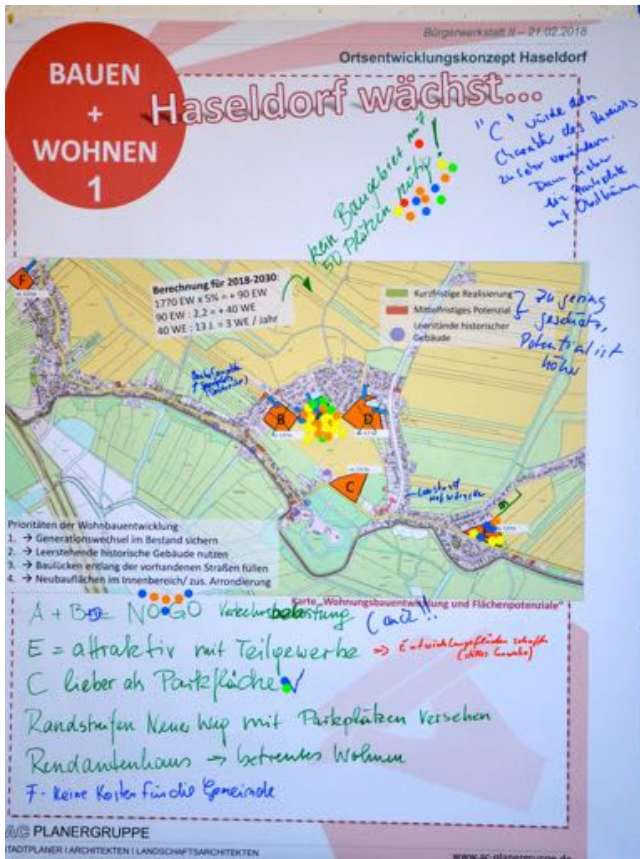 Bürgerwerkstatt II – 21.02.2018
Ortsentwicklungskonzept Haseldorf
BAUEN
+
WOHNEN
1
Haseldorf wächst...
"C" würde den
Charakter des
zu sehr verändern.
Dann lieber
ein Parkplatz
mit Obstbäumen
kein Baugebiet mit
50 Plätzen nötig!
F
Berechnung für 2018-2030:
1770 EW x 5% = + 90 EW
90 EW : 2,2 = + 40 WE
40 WE : 13 J. = 3 WE / Jahr
Kurzfristige Realisierung
Mittelfristiges Potenzial
Leerstände historischer
Gebäude
zu gering
geschätzt,
Potential ist
höher
B
D
C
Leerstand
Prioritäten der Wohnbauentwicklung
1. → Generationswechsel im Bestand sichern
2. → Leerstehende historische Gebäude nutzen
3. → Baulücken entlang der vorhandenen Straßen füllen
4. → Neubauflächen im Innenbereich/ zus. Arrondierung
Karte „Wohnungsbauentwicklung und Flächenpotenziale"
A + B = NO GO Verkehrsbelastung
E = attraktiv mit Teilgewerbe => Entwicklungsflächen schaffen
C lieber als Parkfläche
Randstreifen Neuer Weg mit Parkplätzen versehen
Rendantenhaus → betreutes Wohnen
F - Keine Kosten für die Gemeinde
AC PLANERGRUPPE
STADTPLANER I ARCHITEKTEN I LANDSCHAFTSARCHITEKTEN
www.ac-planergruppe.de